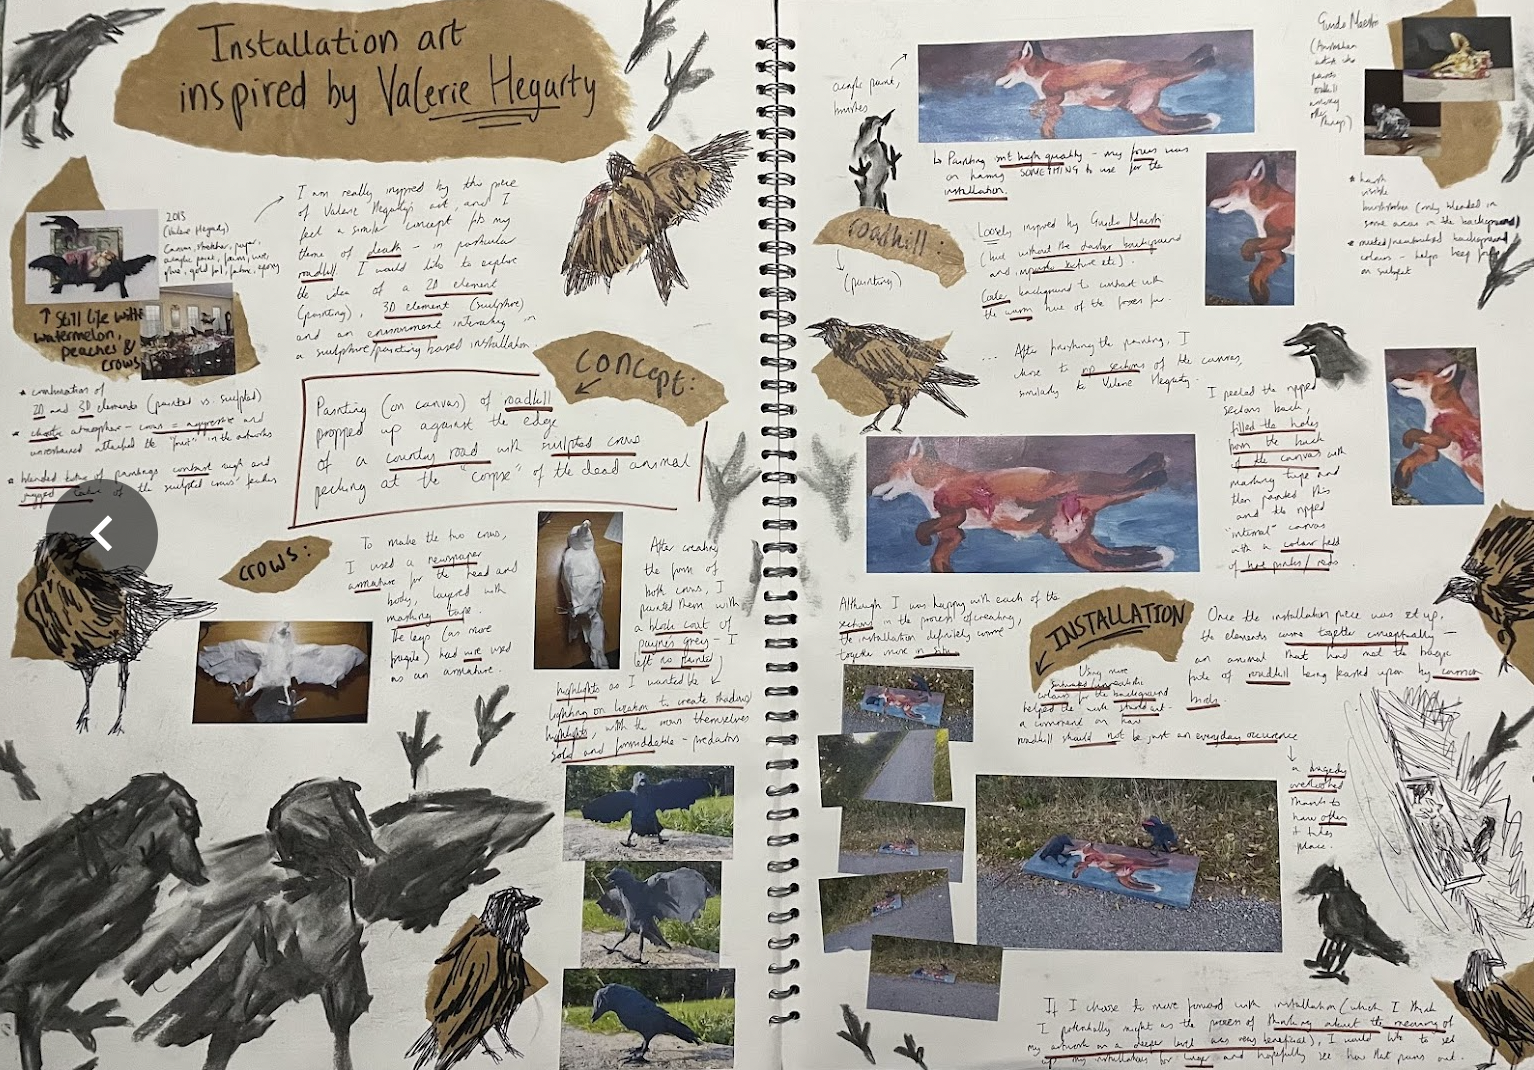 Installation art
inspired by Valerie Hegarty
I am really inspired by this piece
of Valerie Hegarty's art, and I
feel a similar concept fits my
theme of death - in particular
roadkill. I would like to explore
the idea of a 2D element
(painting), 3D element (sculpture)
and an environment interaction in
a sculpture/painting based installation.
2013
(Valerie Hegarty)
Canvas, stretcher, paper,
acrylic paint, foam, wire,
glue, gold foil, epoxy
↑ Still life with
watermelon,
peaches &
crows
* combination of
2D and 3D elements (painted vs. sculpted)
* chaotic atmosphere - crows = aggressive and
unrestrained attacked the "fruit" in the artworks
* blended tone of paintings contrast rough and
jagged of the sculpted crows' feathers
Concept:
Painting (on canvas) of roadkill
propped up against the edge
of a country road with sculpted crows
pecking at the "corpse" of the dead animal
crows:
To make the two crows,
I used a newspaper
armature for the head and
body, layered with
masking tape.
The legs (as more
fragile) had wire used
as an armature.
After creating
the form of
both crows, I
painted them with
a block coat of
payne's grey - I
left no painted
highlights as I wanted the
lighting on location to create shadows/
highlights, with the crows themselves
solid and formidable - predators
acrylic paint,
brushes
↳ Painting isn't high quality - my focus was
on having SOMETHING to use for the
installation.
roadkill:
(painting)
Loosely inspired by Guido Maestri
(but without the darker background
and impasto texture etc).
Cooler background to contrast with
the warm hue of the foxes fur.
Guido Maestri
(Australian
artist who
paints
roadkill
among
other
things)
* harsh
visible
brushstrokes (only blended in
some areas in the background)
* muted/neutral background
colours - helps keep focus
on subject
... After finishing the painting, I
chose to rip sections of the canvas,
similarly to Valerie Hegarty.
I peeled the ripped
sections back,
filled the holes
from the back
of the canvas with
masking tape and
then painted this
and the ripped
"internal" canvas
with a colour field
of hot pinks/reds.
Although I was happy with each of the
sections in the process of creating,
the installation definitely came
together more in situ.
INSTALLATION
Using more
saturated/unrealistic
colours for the background
helped the work stand out -
a comment on how
roadkill should not be just an everyday occurence
Once the installation piece was set up,
the elements came together conceptually -
an animal that had met the tragic
fate of roadkill being feasted upon by common
birds.
a tragedy
overlooked
thanks to
how often
it takes
place.
If I choose to move forward with installation (which I think
I potentially might as the process of thinking about the meaning of
my artwork on a deeper level was very beneficial), I would like to set
up my installation for longer and hopefully see how that pans out.